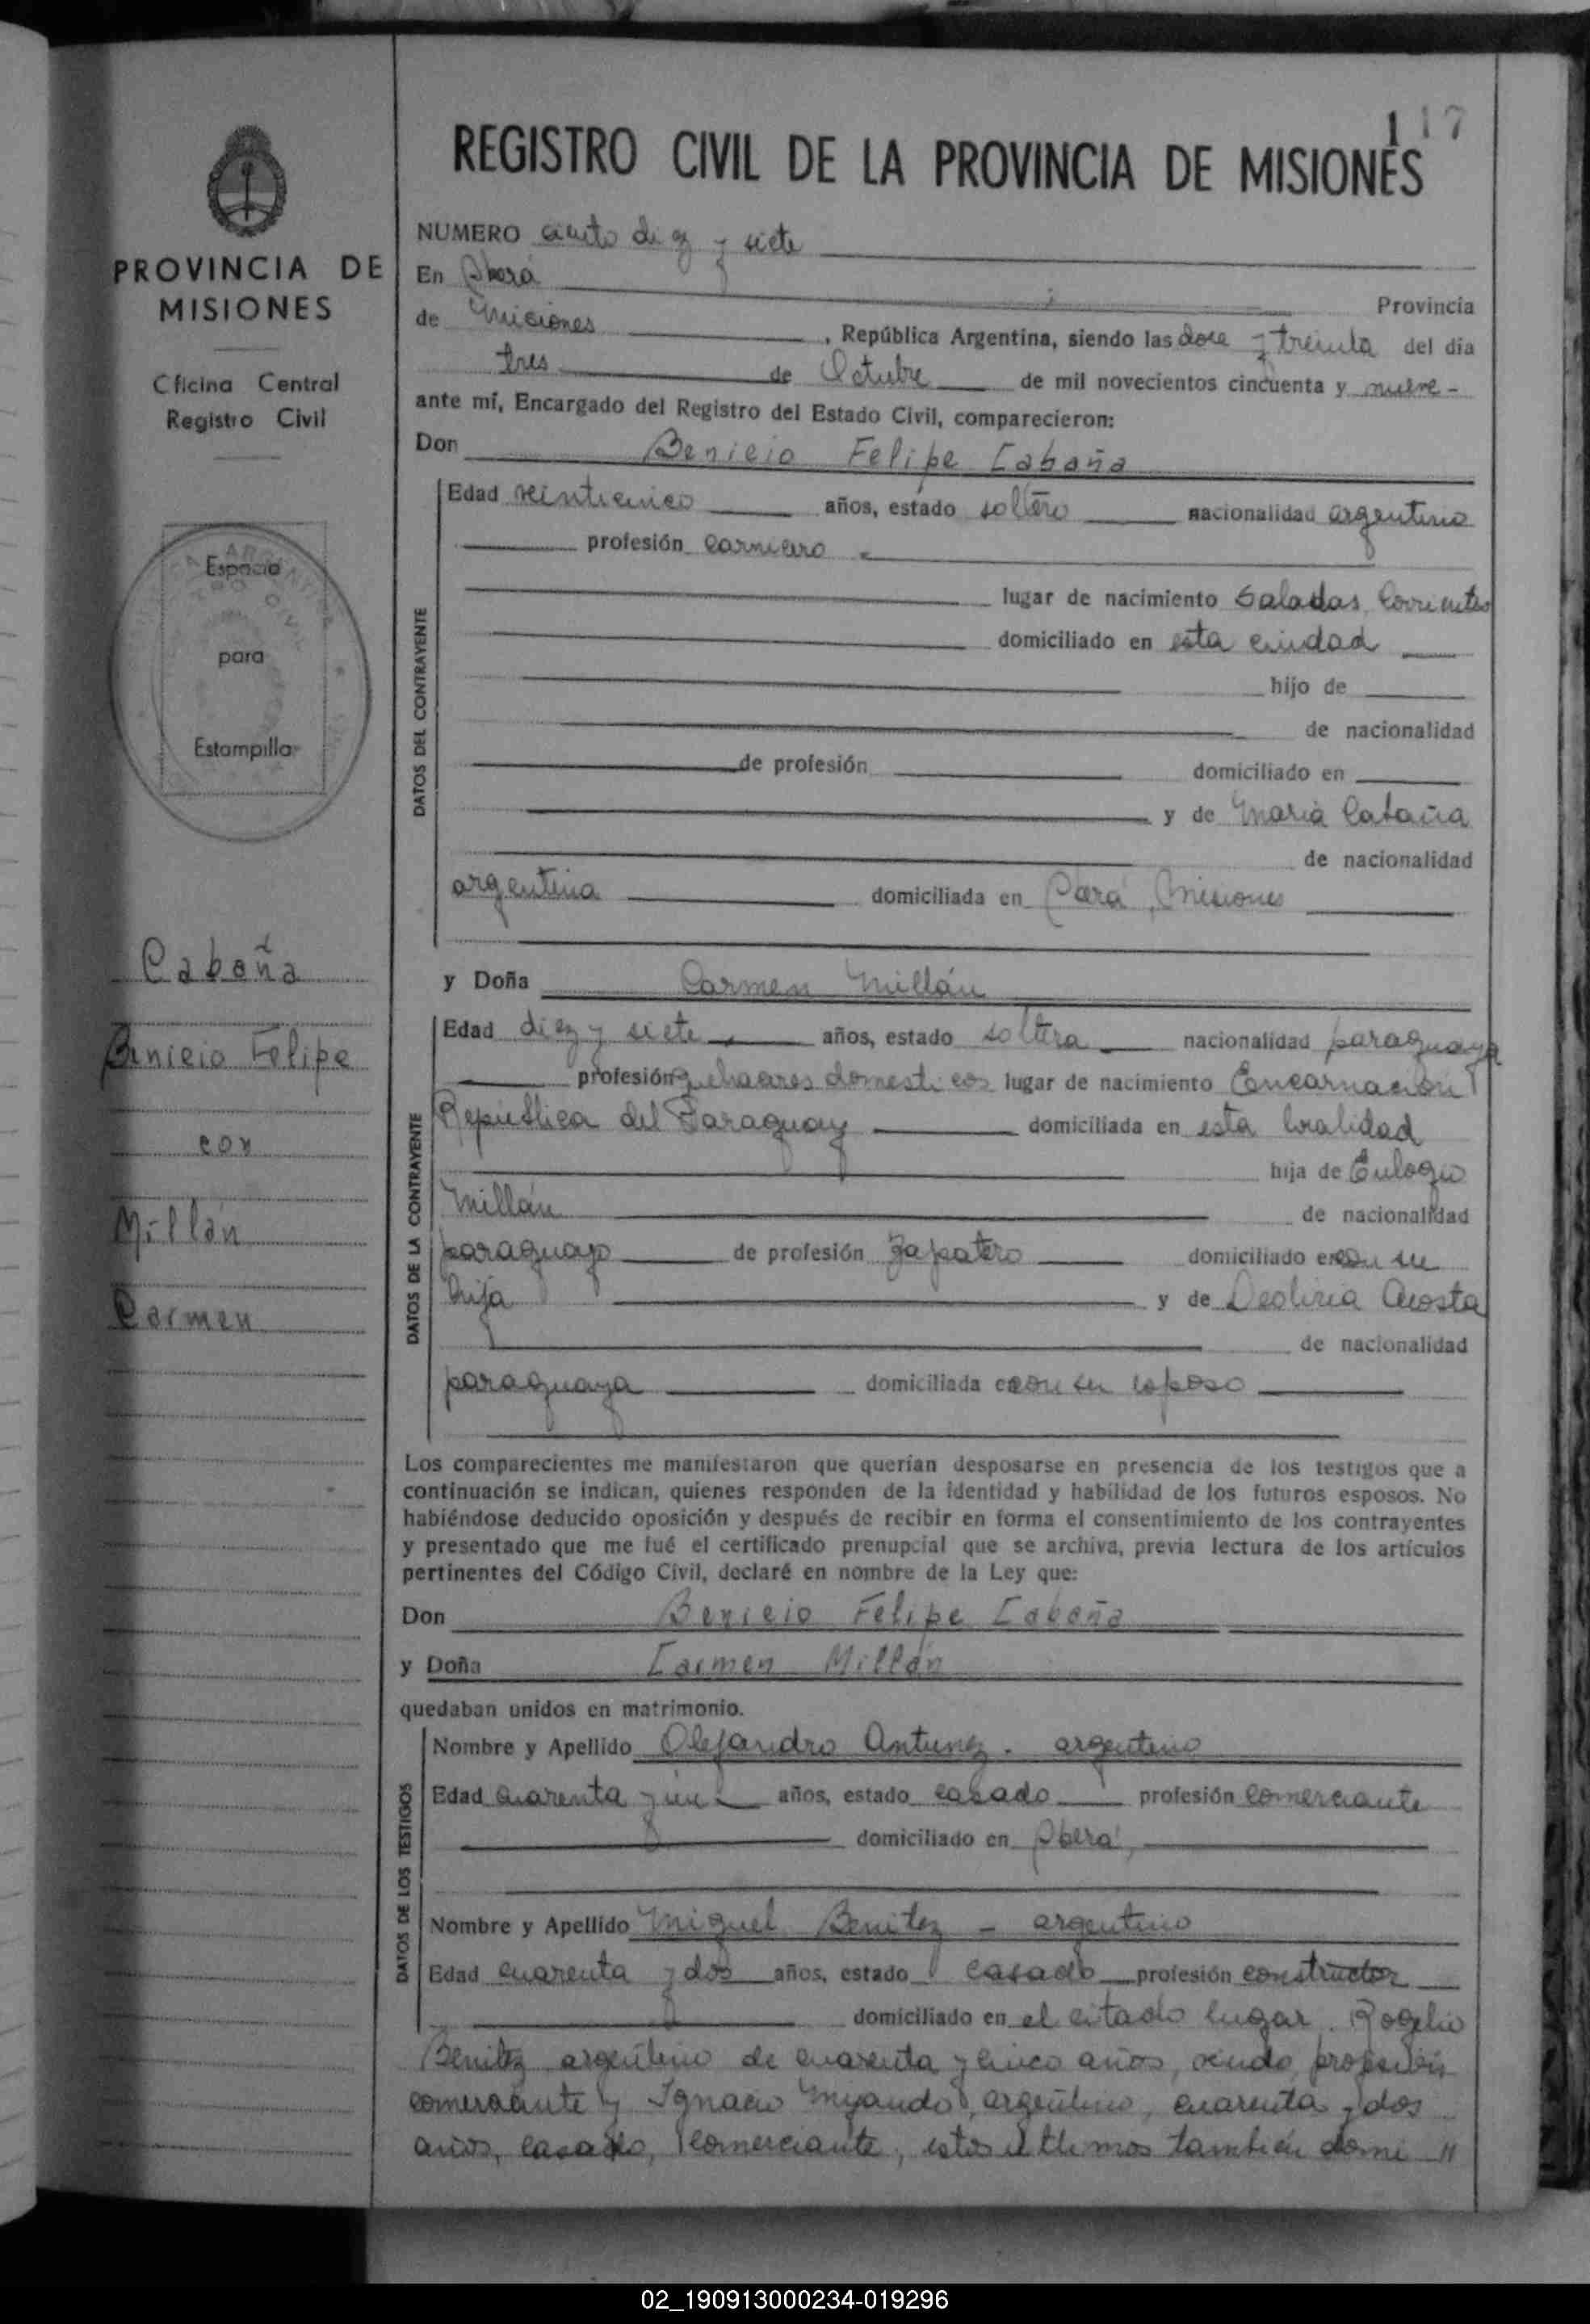 117
REGISTRO CIVIL DE LA PROVINCIA DE MISIONES
PROVINCIA DE
MISIONES
Oficina Central
Registro Civil
Espacio
para
Estampilla
Cabaña
Benicio Felipe
con
Millán
Carmen
NUMERO ciento diez y siete
En Oberá Provincia
de Misiones, República Argentina, siendo las doce y treinta del día
tres de Octubre de mil novecientos cincuenta y nueve
ante mí, Encargado del Registro del Estado Civil, comparecieron:
Don Benicio Felipe Cabaña
DATOS DEL CONTRAYENTE
Edad veinticinco años, estado soltero nacionalidad argentino
profesión carnicero
lugar de nacimiento Saladas, Corrientes
domiciliado en esta ciudad
hijo de
de nacionalidad
de profesión domiciliado en
y de María Cabaña
de nacionalidad
argentina domiciliada en Misiones
y Doña Carmen Millán
DATOS DE LA CONTRAYENTE
Edad diez y siete, años, estado soltera nacionalidad paraguaya
profesión quehaceres domesticos lugar de nacimiento Encarnación
República del Paraguay domiciliada en esta localidad
hija de Eulogio
Millán de nacionalidad
paraguayo de profesión zapatero domiciliado en con su
hija y de Acosta
de nacionalidad
paraguaya domiciliada en con su esposo
Los comparecientes me manifestaron que querían desposarse en presencia de los testigos que a
continuación se indican, quienes responden de la identidad y habilidad de los futuros esposos. No
habiéndose deducido oposición y después de recibir en forma el consentimiento de los contrayentes
y presentado que me fué el certificado prenupcial que se archiva, previa lectura de los artículos
pertinentes del Código Civil, declaré en nombre de la Ley que:
Don Benicio Felipe Cabaña
y Doña Carmen Millán
quedaban unidos en matrimonio.
DATOS DE LOS TESTIGOS
Nombre y Apellido Alejandro Antunez. argentino
Edad cuarenta y un años, estado casado profesión comerciante
domiciliado en Oberá,
Nombre y Apellido Miguel Benitez - argentino
Edad cuarenta y dos años, estado casado profesión constructor
domiciliado en el citado lugar. Rogelio
Benitez argentino de cuarenta y cinco años, viudo, profesión
comerciante y Ignacio argentino, cuarenta y dos
años, casado, comerciante, estos ultimos también domi "
02_190913000234-019296